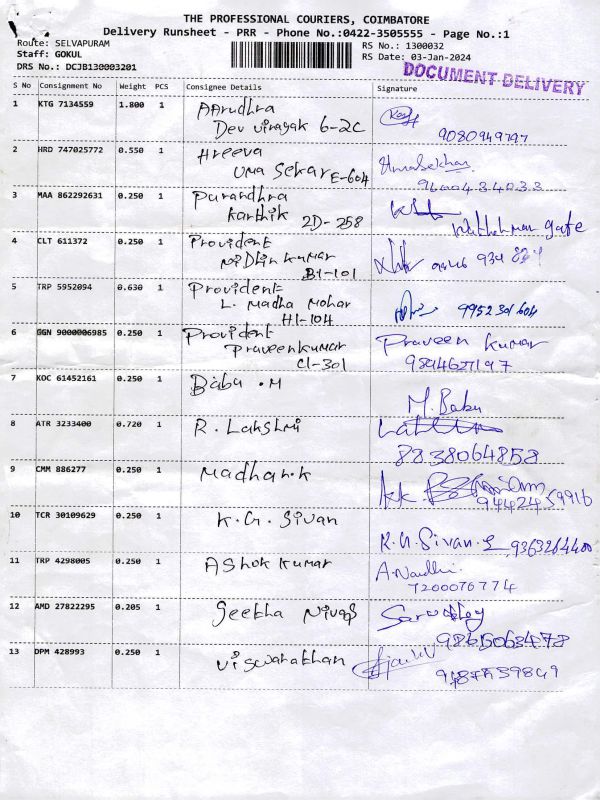 THE PROFESSIONAL COURIERS, COIMBATORE
Delivery Runsheet - PRR - Phone No.:0422-3505555 - Page No.:1
Route: SELVAPURAM
RS No.: 1300032
Staff: GOKUL
RS Date: 03-Jan-2024
DRS No.: DCJB130003201
DOCUMENT DELIVERY
S No Consignment No Weight PCS Consignee Details Signature
1 KTG 7134559 1.800 1 AArudhra
Dev Vinayak 6-2C
9080949797
2 HRD 747025772 0.550 1 Hreeva
Uma Sekar E-604
UmaSekhar
3 MAA 862292631 0.250 1 Purandhra
Karthik 2D-258
gate
4 CLT 611372 0.250 1 Provident
Nidhin Kumar
B1-101
5 TRP 5952094 0.630 1 Provident
L. Madha Mohar
H1-104
9952301604
6 GGN 9000006985 0.250 1 Provident
Praveenkumar
C1-301
Praveen Kumar
7 KOC 61452161 0.250 1 Babu .M
M. Babu
8 ATR 3233400 0.720 1 R. Lakshmi
8838064858
9 CMM 886277 0.250 1 Madhan.K
10 TCR 30109629 0.250 1 K.G. Sivan
K.G. Sivan. 9363264400
11 TRP 4298005 0.250 1 Ashok Kumar
A. Nandhi
7200076774
12 AMD 27822295 0.205 1 Geetha Nivas
9865063478
13 DPM 428993 0.250 1 Viswanathan